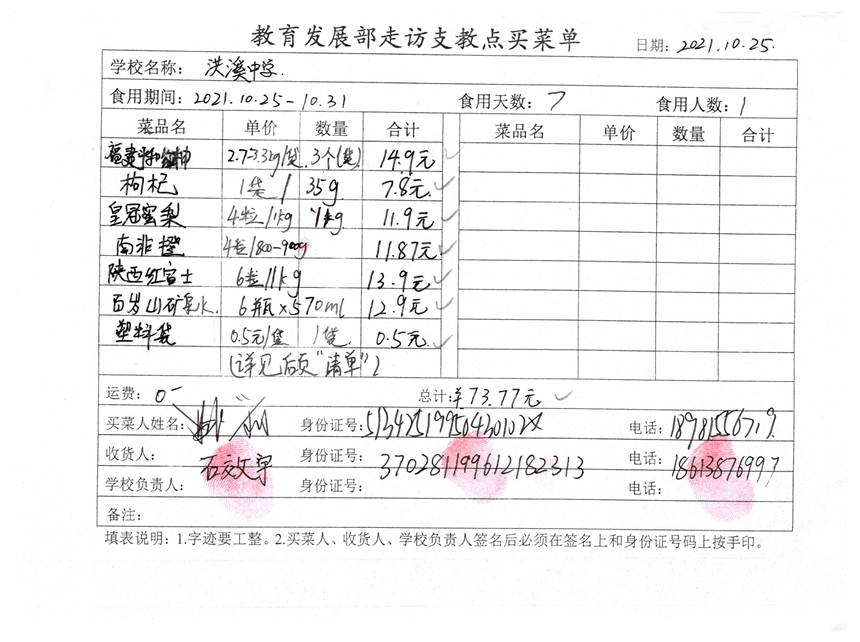 教育发展部走访支教点买菜单
日期：2021.10.25.
学校名称：洪溪中学.
食用期间：2021.10.25-10.31 食用天数：7 食用人数：1
菜品名 单价 数量 合计 菜品名 单价 数量 合计
2.7-3.3kg/袋 3个(袋) 14.9元
枸杞 1袋/ 35g 7.8元.
皇冠蜜梨 4粒/1kg 1kg 11.9元
南非橙 4粒/800-900g 11.87元
陕西红富士 6粒/1kg 13.9元
百岁山矿泉水. 6瓶×570ml 12.9元
塑料袋 0.5元/袋 1袋. 0.5元.
(详见后页"清单")
运费：0 总计：¥73.77元
买菜人姓名： 身份证号：51342519950430102X 电话：18981556719.
收货人：石效文宇 身份证号：370281199612182313 电话：18613876997
学校负责人： 身份证号： 电话：
备注：
填表说明：1.字迹要工整。2.买菜人、收货人、学校负责人签名后必须在签名上和身份证号码上按手印。